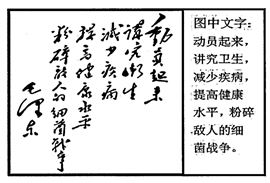 動員起来
講究衛生
减少疾病
提高健康水平
粉碎敌人的细菌戰争
毛泽东
图中文字：
动员起来，
讲究卫生，
减少疾病，
提高健康
水平，粉碎
敌人的细
菌战争。